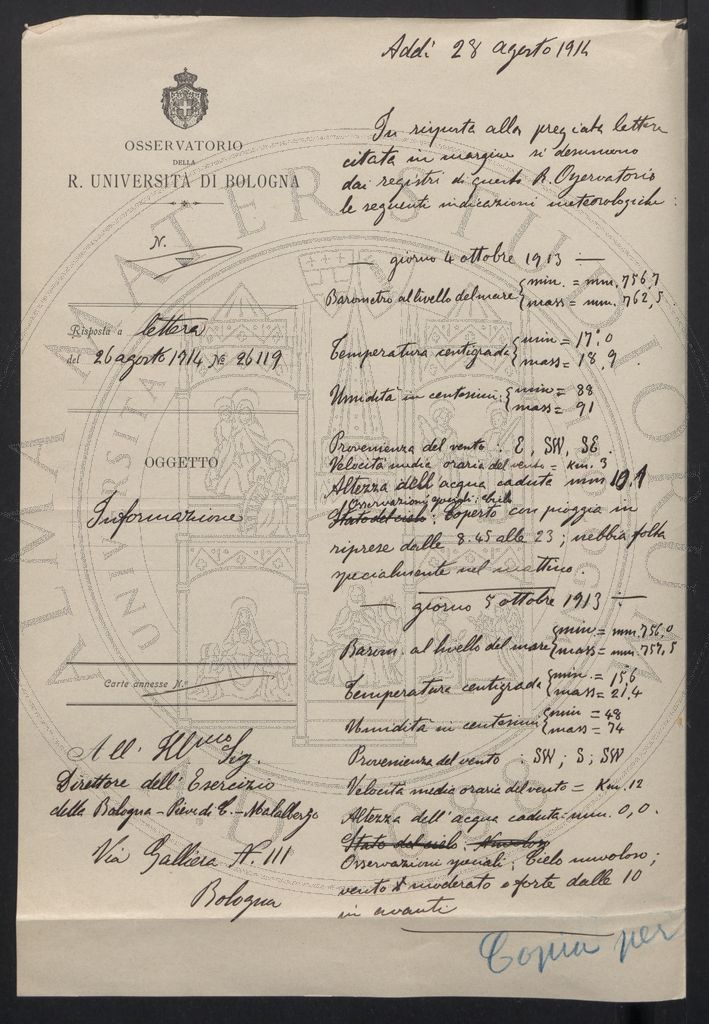 Addì 28 agosto 1914
OSSERVATORIO
DELLA
R. UNIVERSITÀ DI BOLOGNA
N.
Risposta a lettera
del 26 agosto 1914 N° 26119
OGGETTO
Informazione
Carte annesse N.°
All' Ill.mo Sig.
Direttore dell' Esercizio
della Bologna - Pieve di C. - Malalbergo
Via Galliera N. 111
Bologna
In risposta alla pregiata lettera
citata in margine si desumono
dai registri di questo R. Osservatorio
le seguenti indicazioni meteorologiche:
— giorno 4 ottobre 1913 —
Barometro al livello del mare { min. = mm. 756,7
mass = mm. 762,5
Temperatura centigrada { min = 17°,0
mass = 18,9
Umidità in centesimi { min = 88
mass = 91
Provenienza del vento : E, SW, SE
Velocità media oraria del vento = Km. 3
Altezza dell' acqua caduta mm 10,1
Osservazioni speciali: Cielo
Stato del cielo : Coperto con pioggia in
riprese dalle 8.45 alle 23 ; nebbia folta
specialmente nel mattino.
— giorno 5 ottobre 1913 —
Barom. al livello del mare { min = mm. 756,0
mass = mm. 757,5
Temperatura centigrada { min. = 15,6
mass = 21,4
Umidità in centesimi { min = 48
mass = 74
Provenienza del vento : SW ; S ; SW
Velocità media oraria del vento = Km. 12
Altezza dell' acqua caduta mm. 0,0.
Stato del cielo : Nuvoloso
Osservazioni speciali : Cielo nuvoloso ;
vento moderato e forte dalle 10
in avanti
Copia per
ALMA MATER STUDIORUM
UNIVERSITÀ